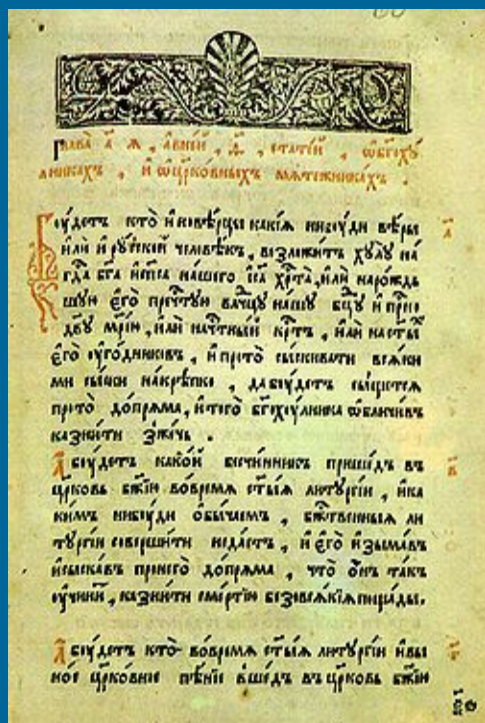 Глава̀ а҃ я , а҆вне́й , д҃ , статїи , ѡ҆бг҃охꙋ́
лникахъ , и҆ ѡ҆цр҃ко́вныхъ мѧте́жникахъ .
Бꙋ́детъ кто̀ и҆нове́рцы какі́ѧ нибꙋ́ди ве́ры
и҆лѝ и҆ рꙋ́ской человѣ́къ , возложи́тъ хꙋлꙋ̀ на́
гд҃а бг҃а и҆ сп҃са на́шего і҆с҃а хр҃та̀ , и҆лѝ наро́ждь
шꙋю є҆го̀ пречⷭ҇тꙋю влⷣчцꙋ на́шꙋ бц҃ꙋ и҆ прⷭ҇но
дв҃ꙋ мр҃і́ю , и҆лѝ начⷭ҇тны́й крⷭ҇тъ , и҆лѝ наст҃ы́хъ
є҆го̀ ᲂу҆го́дниковъ , и҆ прото̀ сы́скивати всѧ́ки
ми сы́ски накрѣ́пко , да бꙋ́детъ сы́щетсѧ
прото̀ допрѧ́ма , и҆ того̀ бг҃охꙋ́лника ѡ҆бличи́въ
казни́ти зже́чь .
А҆ бꙋ́детъ како́й безчи́нникъ прише́дъ въ
цр҃ковь бж҃їю вовре́мѧ ст҃ы́ѧ литꙋргі́и , и҆ ка
ки́мъ нибꙋ́ди ѻ҆бы́чаемъ , бжⷭ҇твенныѧ ли
тꙋргі́и соверши́ти неда́стъ , и҆ є҆го̀ и҆зыма́въ
и҆ сыска́въ пронего̀ допрѧ́ма , что̀ ѻ҆́нъ та́къ
ᲂу҆чини́тъ , казни́ти сме́ртїю безовсѧ́кїѧ поща́ды .
А҆ бꙋ́детъ кто̀ вовре́мѧ ст҃ы́ѧ литꙋргі́и и҆ вы
ное цр҃ко́вное пѣ́нїе вше́дъ въ цр҃ковь бж҃їю